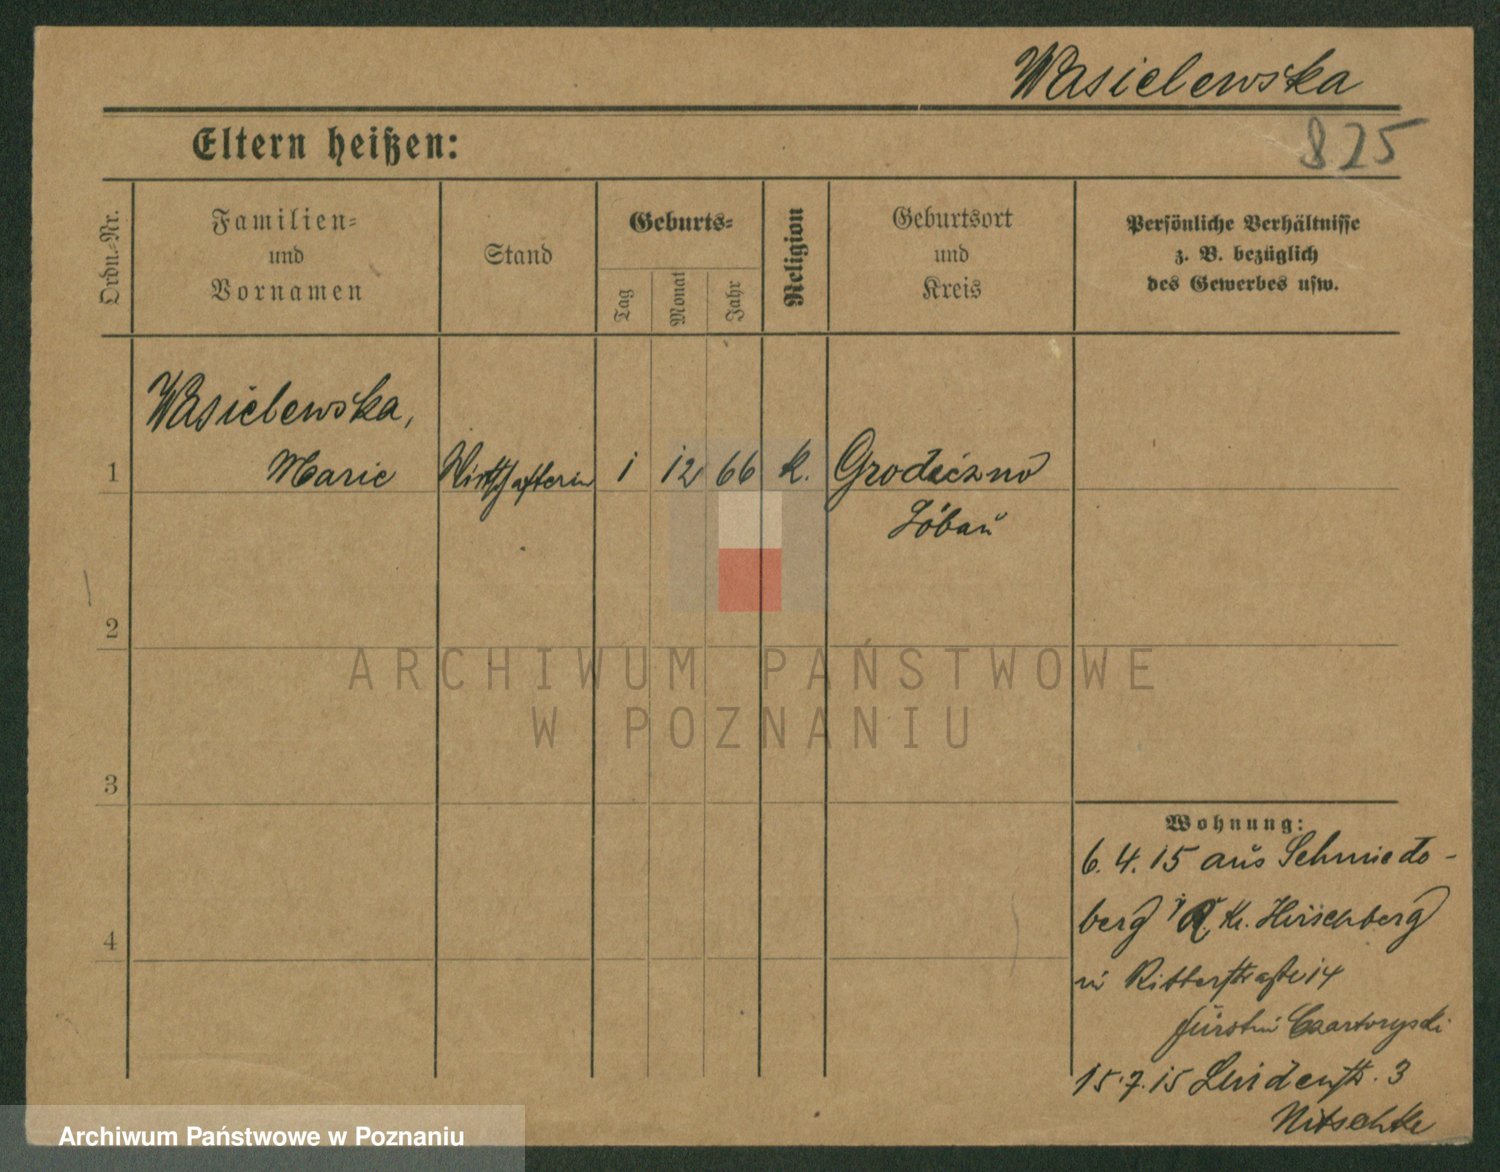 Wasielewska
825
Eltern heißen:
Ordn.-Nr.
Familien-
und
Vornamen
Stand
Geburts-
Tag
Monat
Jahr
Religion
Geburtsort
und
Kreis
Persönliche Verhältnisse
z. B. bezüglich
des Gewerbes usw.
1
Wasielewska,
Marie
Wirtschafterin
1
12
66
k.
Grodziczno
Löbau
2
3
4
Wohnung:
6.4.15 aus Schmiede-
berg i R. Kr. Hirschberg
in Ritterstraße 14
Fürstin Czartoryski
15.7.15 Lindenstr. 3
Nitschke
ARCHIWUM PAŃSTWOWE
W POZNANIU
Archiwum Państwowe w Poznaniu